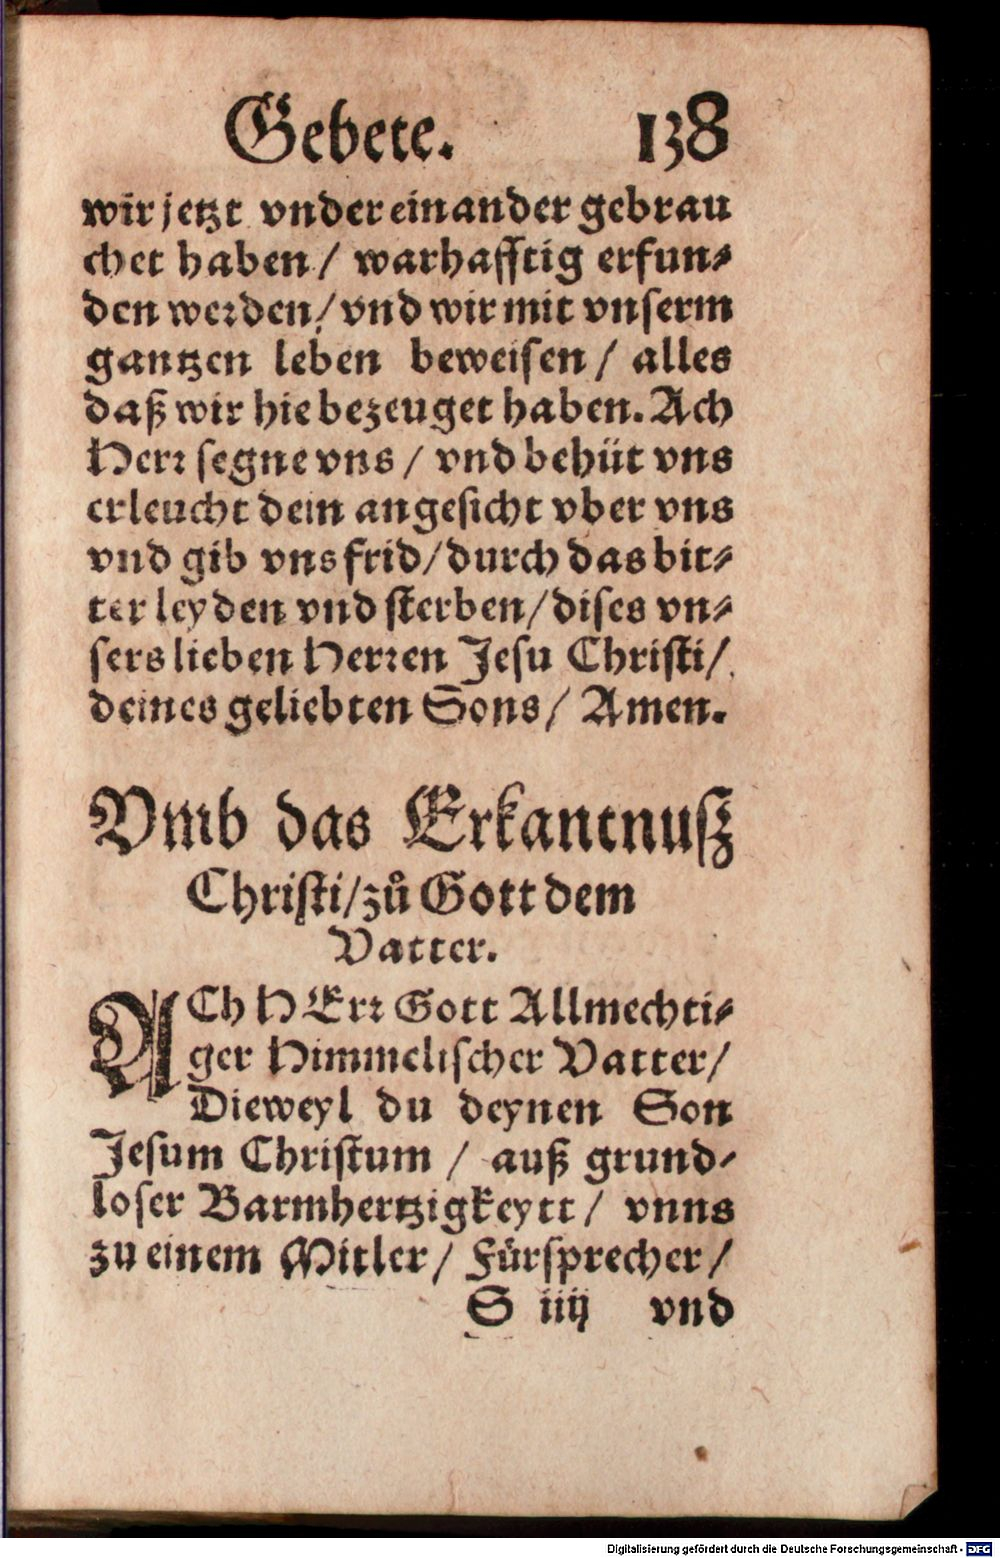 Gebete. 138
wir jetzt vnder einander gebrau
chet haben / warhafftig erfun⸗
den werden / vnd wir mit vnserm
gantzen leben beweisen / alles
daß wir hie bezeuget haben. Ach
Herr segne vns / vnd behüt vns
erleucht dein angesicht vber vns
vnd gib vns frid / durch das bit⸗
ter leyden vnd sterben / dises vn⸗
sers lieben Herren Jesu Christi /
deines geliebten Sons / Amen.
Vmb das Erkantnusz
Christi / zů Gott dem
Vatter.
ACh HErr Gott Allmechti⸗
ger Himmelischer Vatter /
Dieweyl du deynen Son
Jesum Christum / auß grund⸗
loser Barmhertzigkeytt / vnns
zu einem Mitler / Fürsprecher /
S iiij vnd
Digitalisierung gefördert durch die Deutsche Forschungsgemeinschaft - DFG